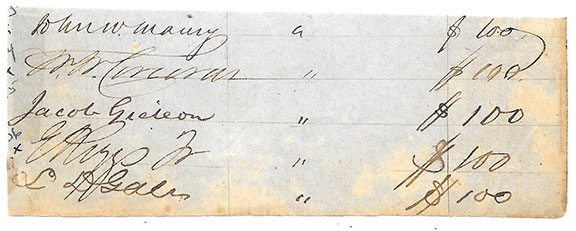 John W. Maury a $ 100
W. W. Corcoran " $ 100
Jacob Gideon " $ 100
G Riggs Jr " $ 100
L D Gale " $ 100